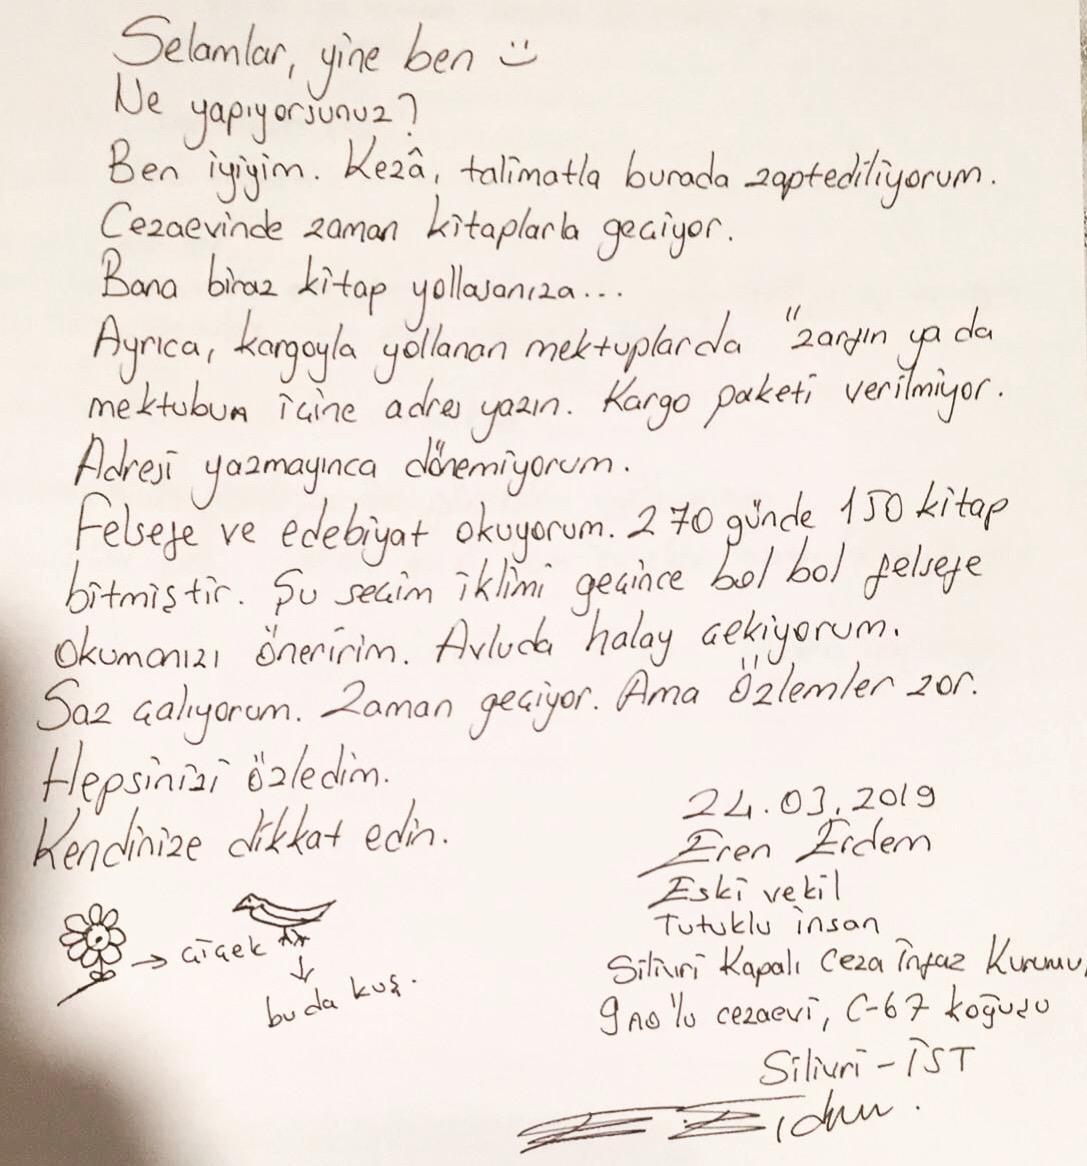 Selamlar, yine ben :)
Ne yapıyorsunuz?
Ben iyiyim. Kezâ, talimatla burada zaptediliyorum.
Cezaevinde zaman kitaplarla geçiyor.
Bana biraz kitap yollasanıza...
Ayrıca, kargoyla yollanan mektuplarda "zarfın ya da
mektubun içine adres yazın. Kargo paketi verilmiyor.
Adresi yazmayınca dönemiyorum.
Felsefe ve edebiyat okuyorum. 270 günde 150 kitap
bitmiştir. Şu seçim iklimi geçince bol bol felsefe
okumanızı öneririm. Avluda halay çekiyorum.
Saz çalıyorum. Zaman geçiyor. Ama özlemler zor.
Hepsinizi özledim.
Kendinize dikkat edin.
24.03.2019
Eren Erdem
Eski vekil
Tutuklu insan
Silivri Kapalı Ceza İnfaz Kurumu,
9 no'lu cezaevi, C-67 koğuşu
Silivri - İST
→ çiçek
↓
bu da kuş.